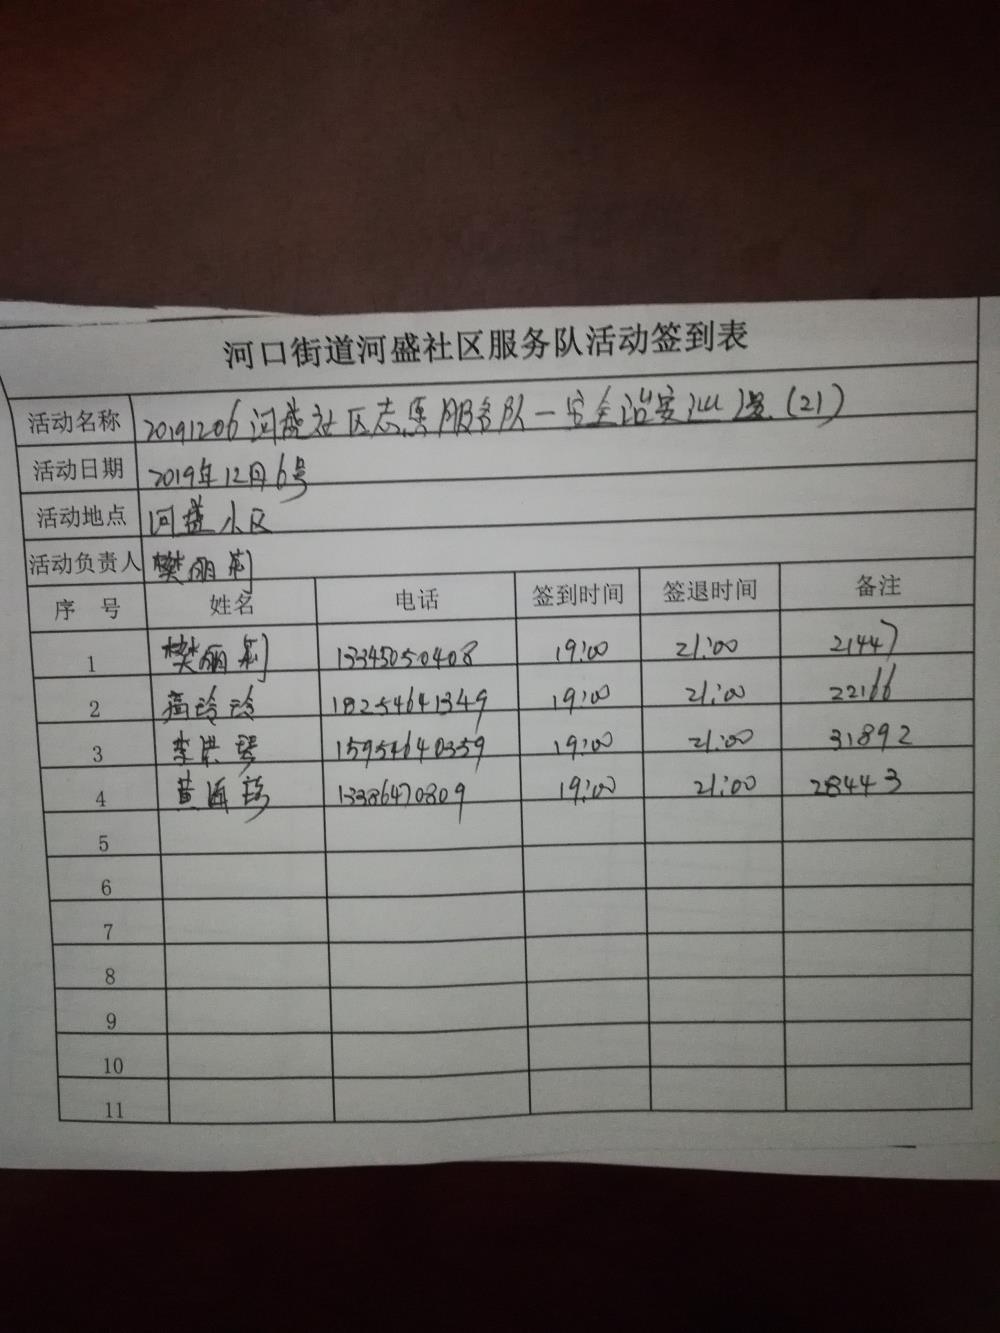 河口街道河盛社区服务队活动签到表
活动名称 20191206河盛社区志愿服务队一安全治安巡逻(21)
活动日期 2019年12月6号
活动地点 河盛小区
活动负责人 樊丽莉
序 号 姓名 电话 签到时间 签退时间 备注
1 樊丽莉 13345050408 19:00 21:00 21447
2 玲玲 18254641349 19:00 21:00 22166
3 李洪琴 15954640359 19:00 21:00 31892
4 黄海 13386470809 19:00 21:00 28443
5
6
7
8
9
10
11